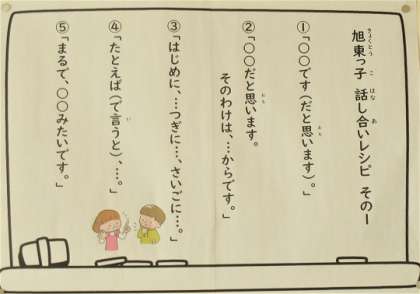 旭東っ子 話し合いレシピ その一
①「〇〇です(だと思います)。」
②「〇〇だと思います。
そのわけは、…からです。」
③「はじめに、…つぎに…、さいごに…。」
④「たとえば(で言うと)、…。」
⑤「まるで、〇〇みたいです。」